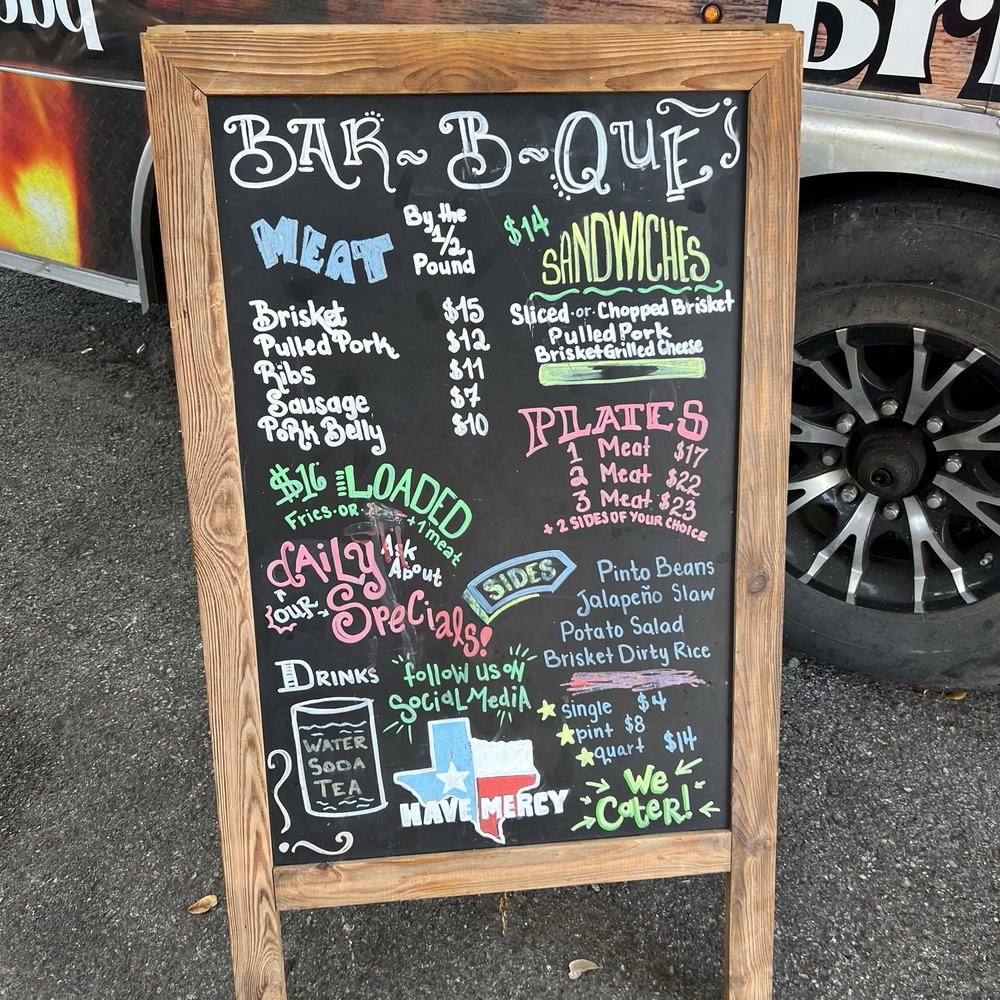 BBQ
Bri
BAR~B~QUE
MEAT
By the
1/2
Pound
Brisket $15
Pulled Pork $12
Ribs $11
Sausage $7
Pork Belly $10
$14 SANDWICHES
Sliced or Chopped Brisket
Pulled Pork
Brisket Grilled Cheese
PLATES
1 Meat $17
2 Meat $22
3 Meat $23
+ 2 SIDES OF YOUR CHOICE
$16 LOADED
Fries OR
+1 meat
Ask
About
OUR
dAiLy
Specials!
SIDES
Pinto Beans
Jalapeño Slaw
Potato Salad
Brisket Dirty Rice
single $4
pint $8
quart $14
DRINKS
WATER
SODA
TEA
follow us on
Social Media
HAVE MERCY
We
Cater!